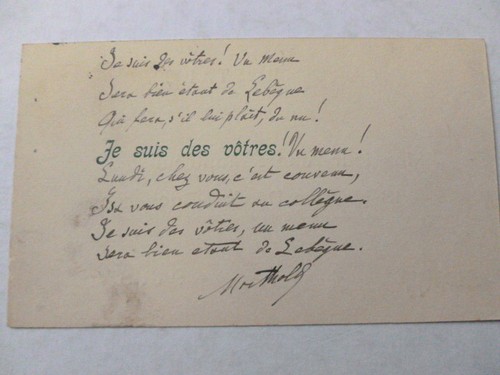 Je suis des vôtres! Un menu
Sera bien étant de Lebègue
Qui fera, s'il lui plaît, du nu!
Je suis des vôtres! Un menu!
Lundi, chez vous, c'est convenu,
vous conduit un collègue.
Je suis des vôtres, un menu
Sera bien étant de Lebègue.